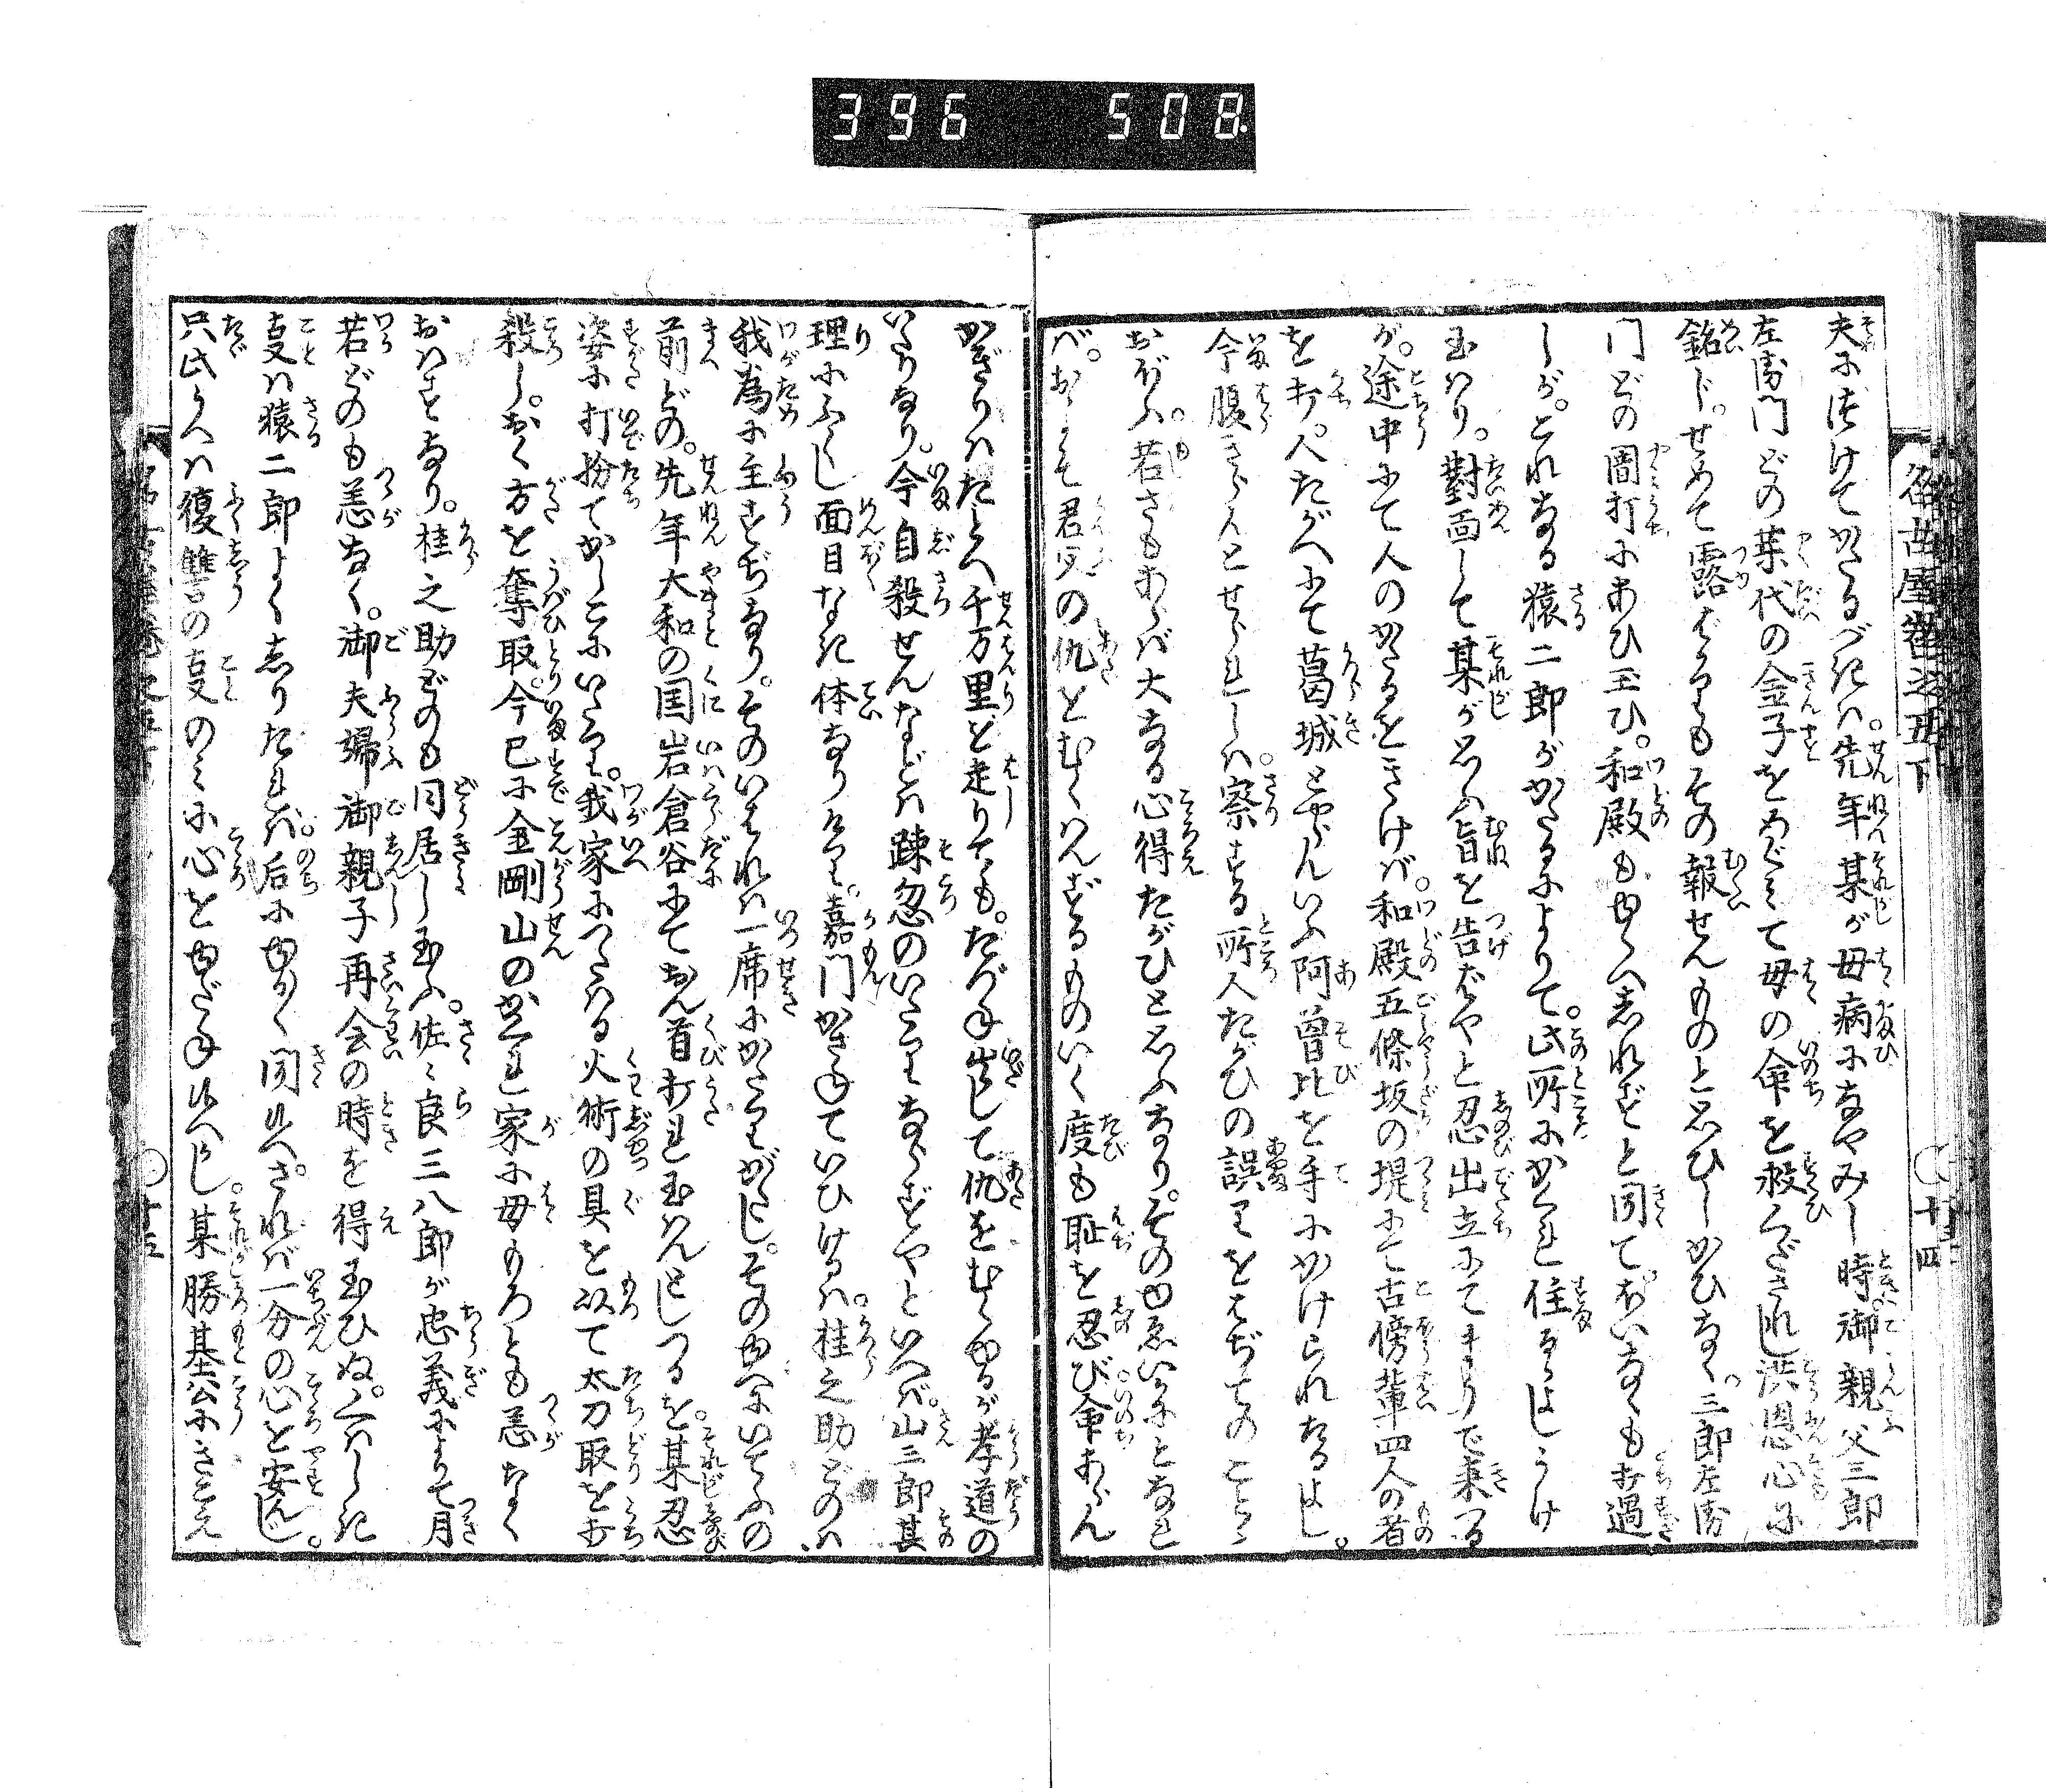 396 508
夫につけてかたるべきは。先年某が母病になやみし時。御親父三郎
左衛門どの薬代の金子をめぐみて母の命を救ひくだされし洪恩心に
銘じ。せめて露ばかりもその報せんものと思ひしかひなく。三郎左衛
門どの闇打にあひ玉ひ。和殿もゆくへしれずと聞て。ほいなくも打過
しが。これなる猿二郎がかたるによりて。此所にかくれ住よしうけ
玉はり。對面して某が思ふ旨を告ばやと忍出立にてまうで来つる
が。途中にて人のかたるをきけば。和殿五條坂の堤にて古傍輩四人の者
を打。人たがへにて葛城とやらんいふ阿曽比を手にかけられたるよし。
今腹きらんとせられしは。察する所人たがひの誤りをはぢてのことゝ
おぼふ。若さもあらば大なる心得たがひと思ふなり。そのゆゑいかにとなれ
ば。およそ君父の仇をむくはんずるものいく度も恥を忍び命あらん
かぎりはたとへ千万里を走りても。たづね出して仇をむくゆるが孝道の
いたりなり。今自殺せんなどは疎忽のいたりならずやといへば。山三郎其
理にふくし面目なき体なりけり。嘉門かさねていひけるは。桂之助どのは
我為に主すぢなり。そのいはれは一席にかたりがたし。そのゆへにいてふの
前どの。先年大和の国岩倉谷にておん首打れ玉はんとしつるを。某忍
姿に打扮てかしこにいたり。我家につたはる火術の具を以て太刀取を打
殺し。おく方を奪取。今已に金剛山のかくれ家に母もろとも恙なく
おはすなり。桂之助どのも同居し玉ふ。佐々良三八郎が忠義によりて月
若どのも恙なく。御夫婦御親子再会の時を得玉ひぬ。くはしき
事は猿二郎よくしりたれば。后にゆるゆる聞玉へ。されば一分の心を安んじ。
只此うへは復讐の事のみに心をゆだね玉へかし。某勝基公にきこえ
名古屋巻之五下
十四
十五